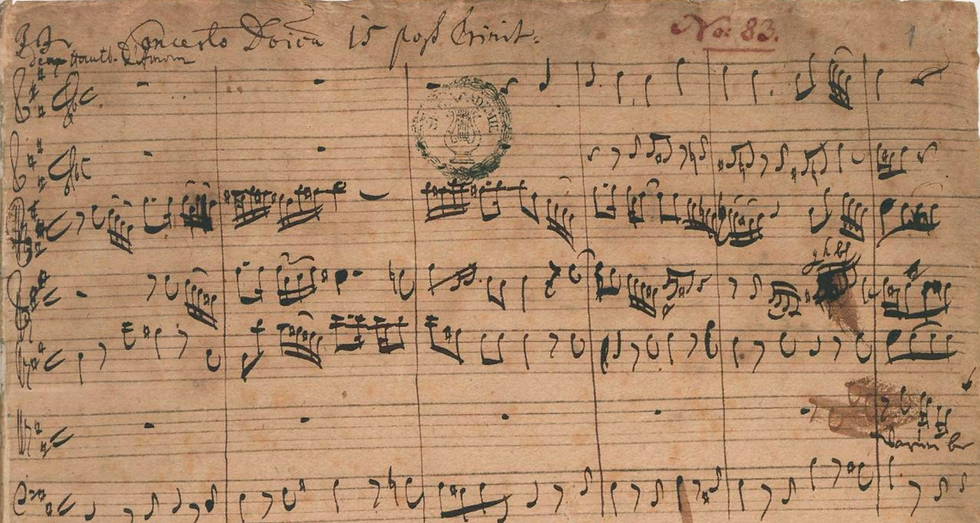 J. J. Concerto Doīca 15 post Trinit: No: 83. 1
Hautb. d'Amour
Warum be